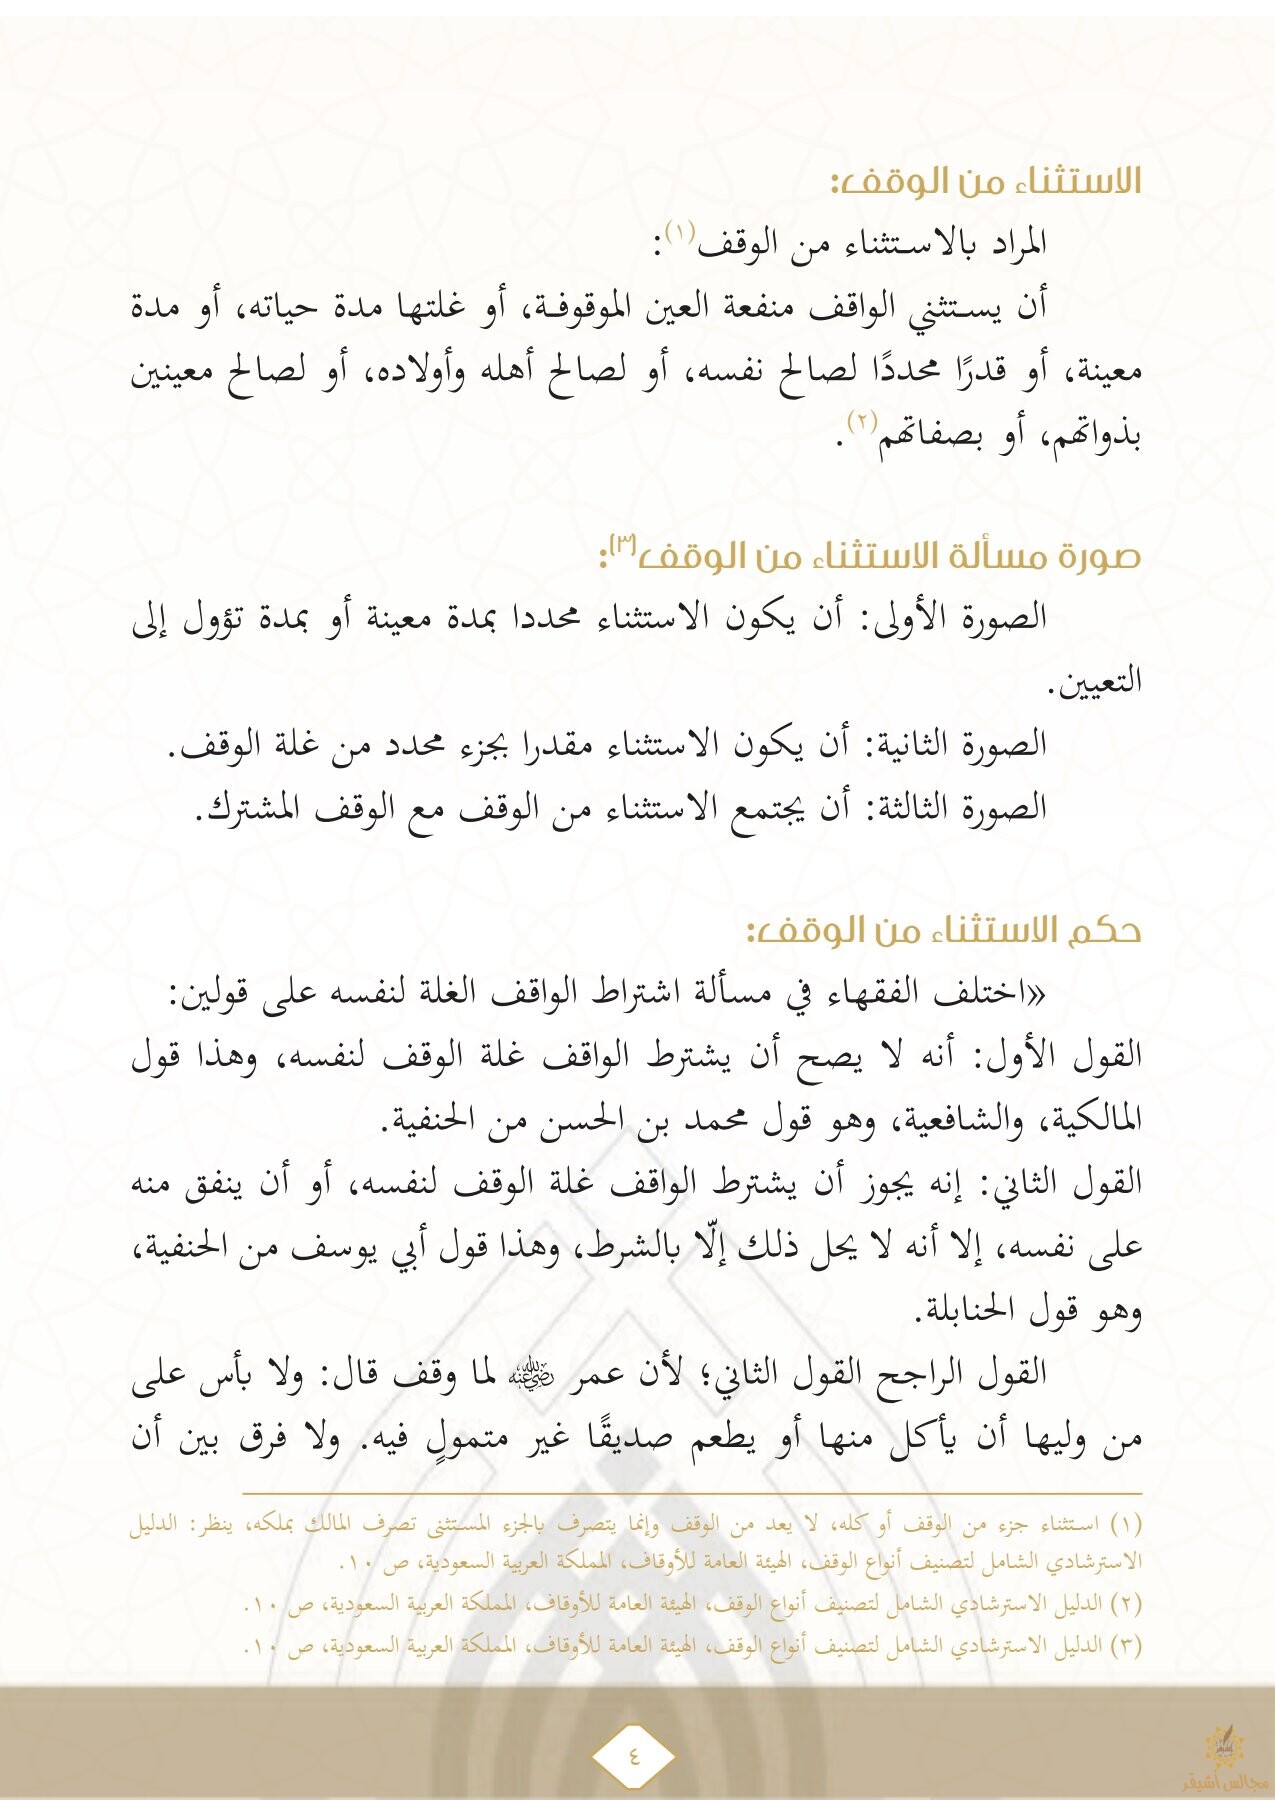 الاستثناء من الوقف:
المراد بالاستثناء من الوقف(١):
أن يستثني الواقف منفعة العين الموقوفة، أو غلتها مدة حياته، أو مدة
معينة، أو قدرًا محددًا لصالح نفسه، أو لصالح أهله وأولاده، أو لصالح معينين
بذواتهم، أو بصفاتهم(٢).
صورة مسألة الاستثناء من الوقف(٣):
الصورة الأولى: أن يكون الاستثناء محددا بمدة معينة أو بمدة تؤول إلى
التعيين.
الصورة الثانية: أن يكون الاستثناء مقدرا بجزء محدد من غلة الوقف.
الصورة الثالثة: أن يجتمع الاستثناء من الوقف مع الوقف المشترك.
حكم الاستثناء من الوقف:
«اختلف الفقهاء في مسألة اشتراط الواقف الغلة لنفسه على قولين:
القول الأول: أنه لا يصح أن يشترط الواقف غلة الوقف لنفسه، وهذا قول
المالكية، والشافعية، وهو قول محمد بن الحسن من الحنفية.
القول الثاني: إنه يجوز أن يشترط الواقف غلة الوقف لنفسه، أو أن ينفق منه
على نفسه، إلا أنه لا يحل ذلك إلّا بالشرط، وهذا قول أبي يوسف من الحنفية،
وهو قول الحنابلة.
القول الراجح القول الثاني؛ لأن عمر رضي الله عنه لما وقف قال: ولا بأس على
من وليها أن يأكل منها أو يطعم صديقًا غير متمولٍ فيه. ولا فرق بين أن
(١) استثناء جزء من الوقف أو كله، لا يعد من الوقف وإنما يتصرف بالجزء المستثنى تصرف المالك بملكه، ينظر: الدليل
الاسترشادي الشامل لتصنيف أنواع الوقف، الهيئة العامة للأوقاف، المملكة العربية السعودية، ص ١٠.
(٢) الدليل الاسترشادي الشامل لتصنيف أنواع الوقف، الهيئة العامة للأوقاف، المملكة العربية السعودية، ص ١٠.
(٣) الدليل الاسترشادي الشامل لتصنيف أنواع الوقف، الهيئة العامة للأوقاف، المملكة العربية السعودية، ص ١٠.
٤
مجالس أشيقر